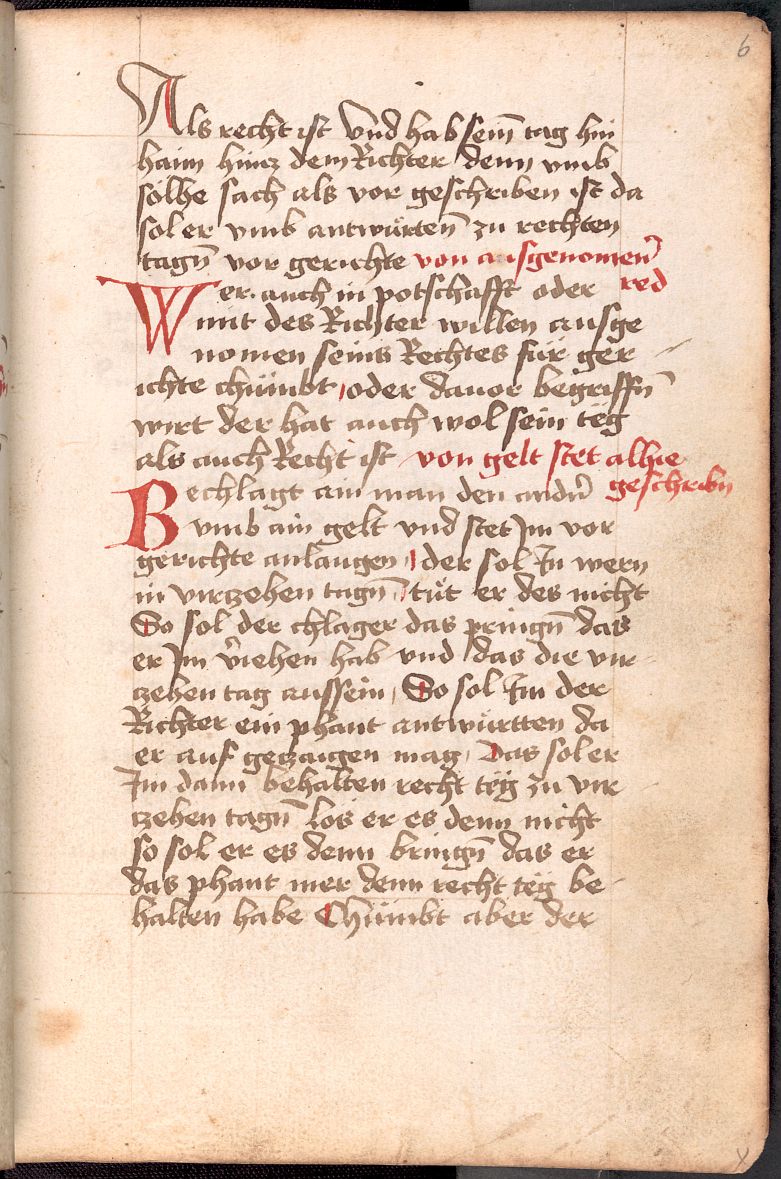 6
Als recht ist Vnd hab sein̄ tag hin
haim hincz dem Richter denn vmb
sölhe sach als vor geschriben ist da
sol er vmb antwürten̄ zu rechten
tagn̄ vor gerichte von ausgenomen̄
red
Wer auch in potschafft oder
mit des Richter willen ausge
nomen seins Rechtes für ger
ichte chümbt, oder dauor begriffn̄
wirt der hat auch wol sein täg
als auch Recht ist von gelt stet alhie
geschribn̄
Bechlagt ain man den andn̄
vmb ain gelt vnd stet Jm vor
gerichte anlaugen, der sol Jn wern
in virczehen tagn̄, tüt er des nicht
So sol der chlager das pringn̄ das
er Jm v̄iehen hab vnd das die vir
czehen tag aussein, So sol Jm der
Richter ein phant antwürtten da
er auf geczaigen mag, Das sol er
Jm dann behalten recht täg zu vir
czehen tagn̄ lös er es denn nicht
so sol er es denn bringn̄ das er
das phant mer denn recht täg be
halten habe Chümbt aber der